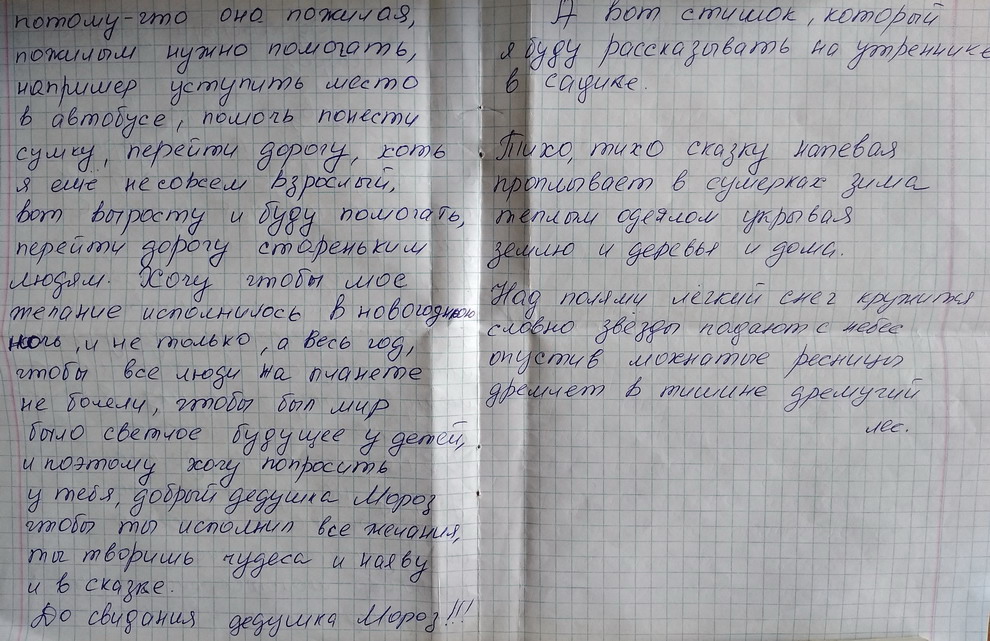 потому-что она пожилая,
пожилым нужно помогать,
например уступить место
в автобусе, помочь понести
сумку, перейти дорогу, хоть
я ещё несовсем взрослый,
вот выросту и буду помогать,
перейти дорогу стареньким
людям. Хочу чтобы мое
желание исполнилось в новогоднюю
ночь, и не только, а весь год,
чтобы все люди на планете
не болели, чтобы был мир
было светлое будущее у детей,
и поэтому хочу попросить
у тебя, добрый дедушка Мороз
чтобы ты исполнил все желания,
ты творишь чудеса и наяву
и в сказке.
До свидания дедушка Мороз!!!
А вот стишок, который
я буду рассказывать на утреннике
в садике.
Тихо, тихо сказку напевая
проплывает в сумерках зима
тёплым одеялом укрывая
землю и деревья и дома.
Над полями лёгкий снег кружится
словно звёзды падают с небес
опустив мохнатые ресницы
дремлет в тишине дремучий
лес.